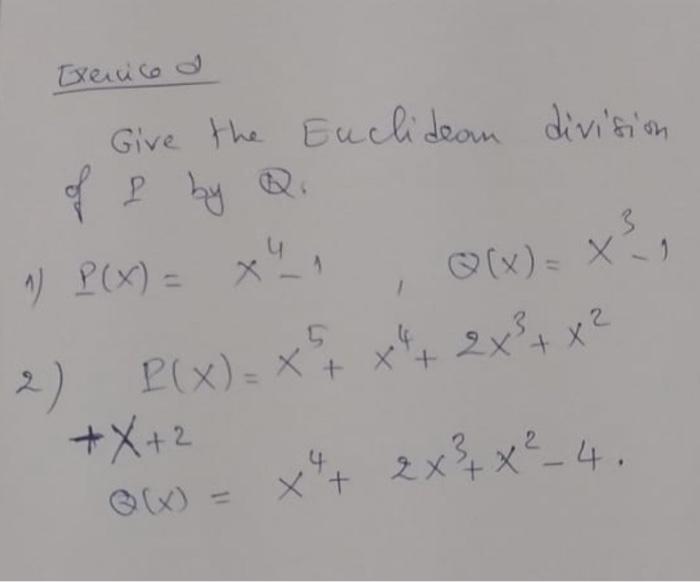 Exercice 2
Give the Euclidean division
of P by Q.
1) P(X) = x⁴-1 , Q(X) = x³-1
2) P(X) = x⁵ + x⁴ + 2x³ + x²
+X+2
Q(X) = x⁴ + 2x³ + x² - 4.